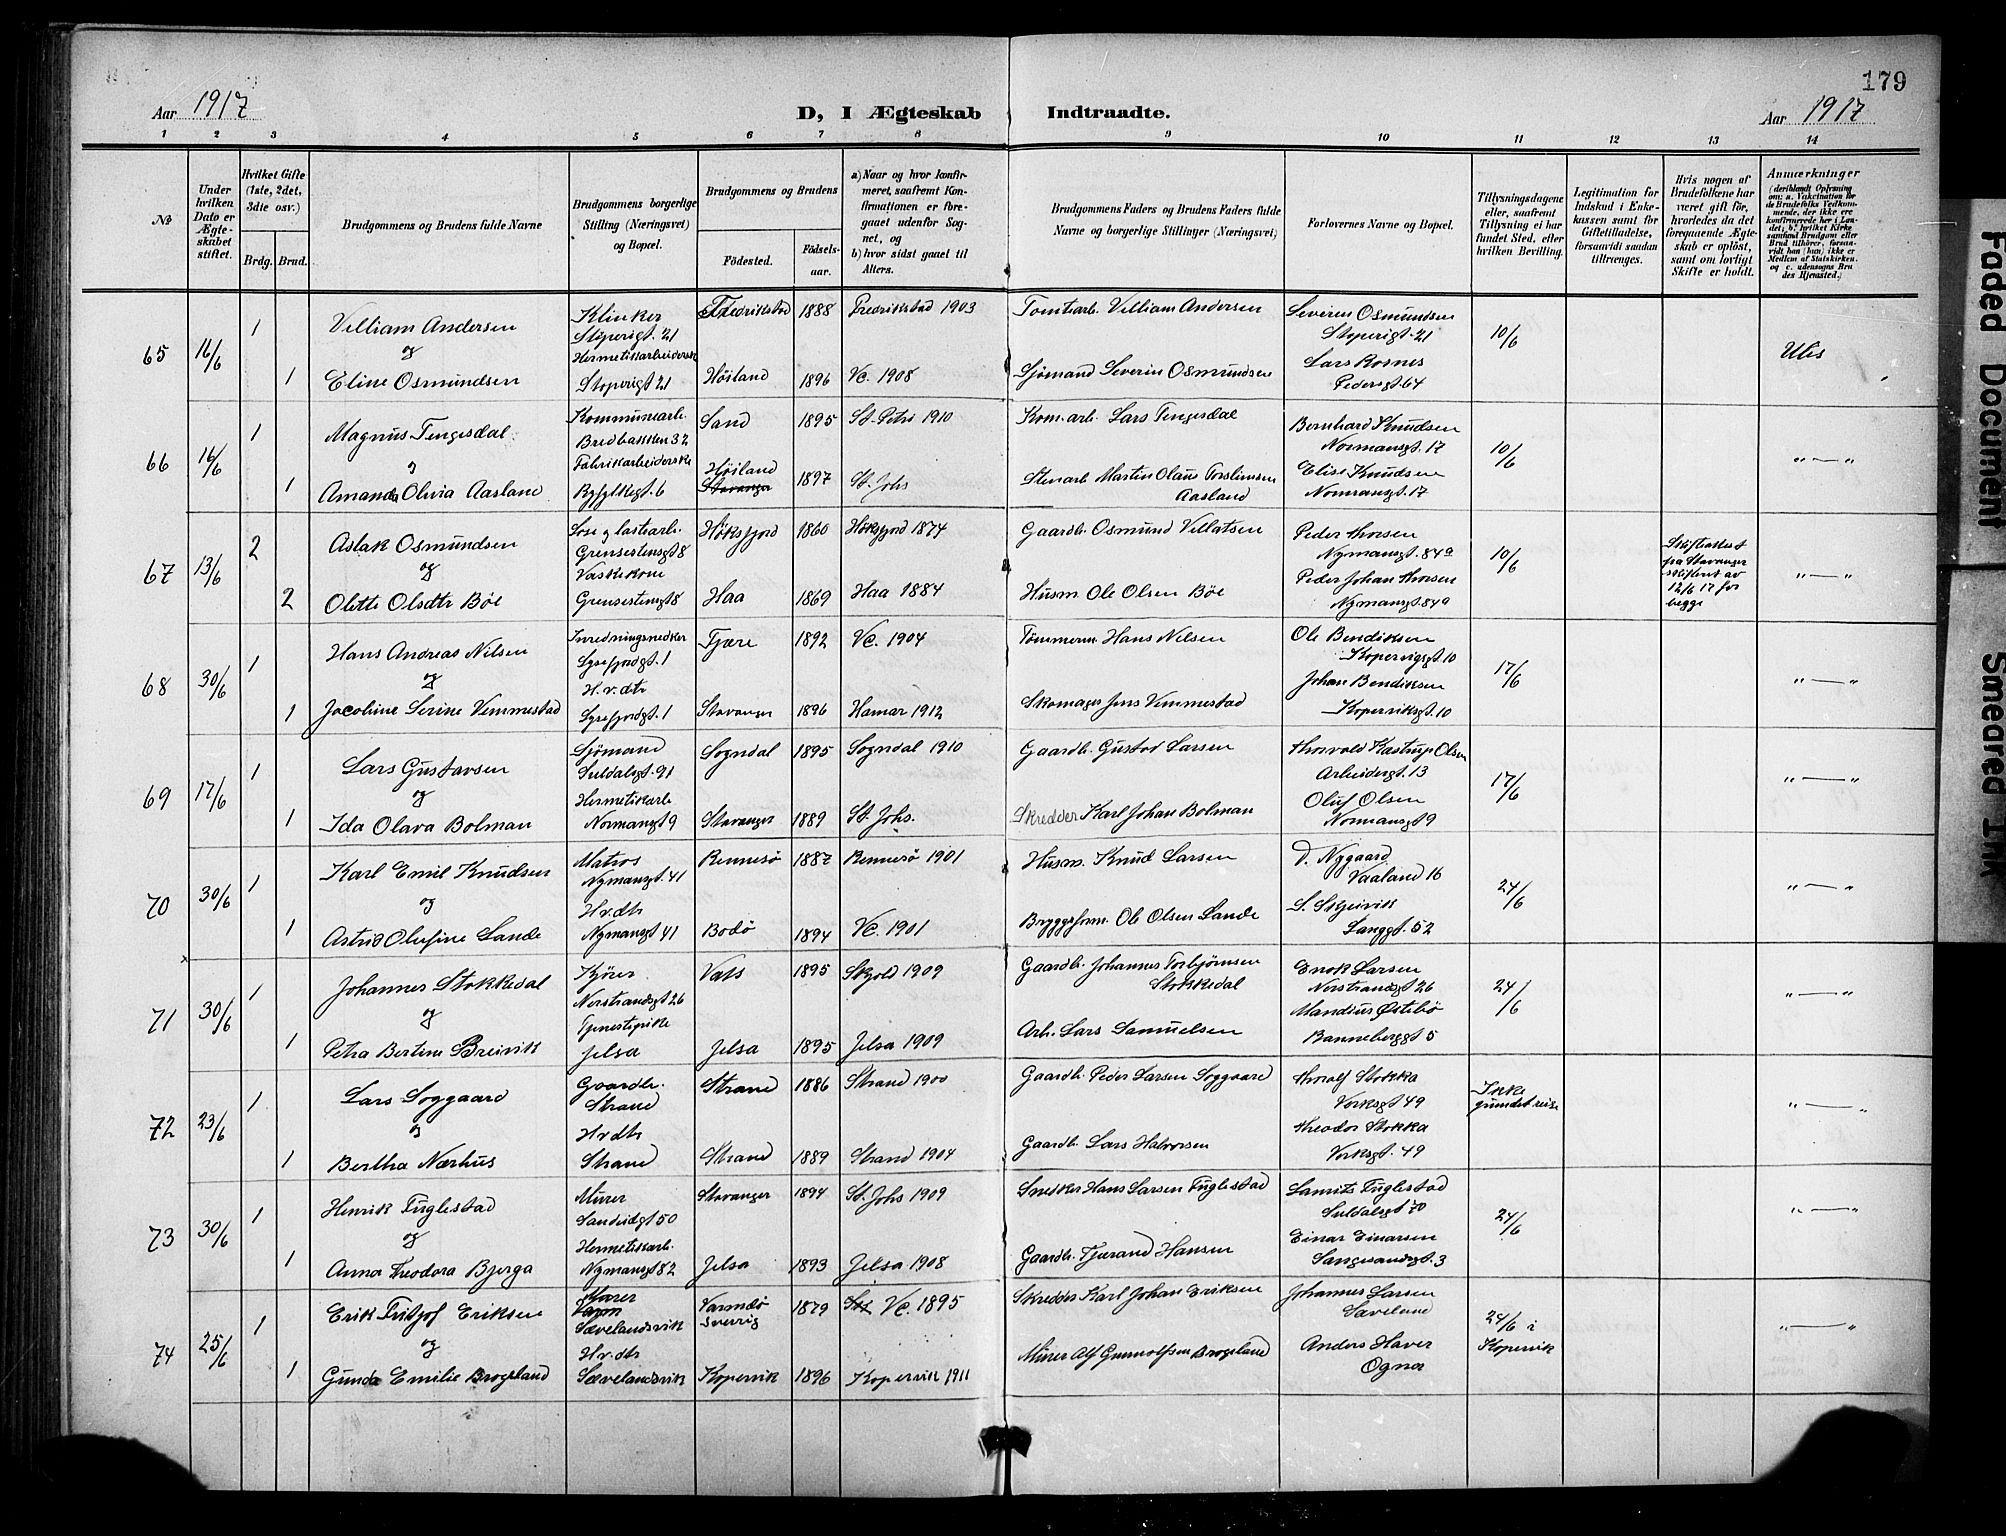 179
Aar 1917
D, I Ægteskab Indtraadte.
Aar 1917
1 2 3 4 5 6 7 8 9 10 11 12 13 14
№
Under hvilken Dato er Ægteskabet stiftet.
Hvilket Gifte (1ste, 2det, 3die osv.)
Brdg. Brud.
Brudgommens og Brudens fulde Navne
Brudgommens borgerlige Stilling (Næringsvei) og Bopæl.
Brudgommens og Brudens
Fødested.
Fødselsaar.
a) Naar og hvor konfirmeret, saafremt Konfirmationen er foregaaet udenfor Sognet, og
b) hvor sidst gaaet til Alters.
Brudgommens Faders og Brudens Faders fulde Navne og borgerlige Stillinger (Næringsvei)
Forlovernes Navne og Bopæl.
Tillysningsdagene eller, saafremt Tillysning ei har fundet Sted, efter hvilken Bevilling.
Legitimation for Indskud i Enkekassen samt for Giftetilladelse, forsaavidt saadan tiltrænges.
Hvis nogen af Brudefolkene har været gift før, hvorledes da det foregaaende Ægteskab er opløst, samt om lovligt Skifte er holdt.
Anmærkninger
65 16/6 1 Villiam Andersen Klinker Støperigt. 21 Fredrikstad 1888 Fredrikstad 1903 Tomtarb. Villiam Andersen Severin Osmundsen Støperigt. 21 10/6
og Hermetikarbeiderske Lars Rosnes
1 Eline Osmundsen Støperigt 21 Høiland 1896 Vc. 1908 Sjømand Severin Osmundsen Pedersgt 64
66 16/6 1 Magnus Tengesdal Kommunearb. Bredbakken 32 Sand 1895 St. Petri 1910 Kom. arb. Lars Tengesdal Bernhard Knudsen Normansgt. 17 10/6 "—"
Fabrikarbeiderske Høiland Elise Knudsen
1 Amanda Olivia Aasland Ryfylkegt. 6 Stavanger 1897 St. Johs Stenarb. Martin Olaus Torsteinsen Aasland Normansgt. 17
67 13/6 2 Aslak Osmundsen Lose og lastearb. Grensestensgt 8 Høksfjord 1860 Høksfjord 1874 Gaardb. Osmund Villatsen Peder Thorsen Nymansgt. 84a 10/6 Skifteattest fra Stavanger skifteret av 12/6 17 for begge "—"
og Vaskekone Peder Johan Thorsen
2 Olette Olsdtr Bøe Grensestensgt 8 Haa 1869 Haa 1884 Husm Ole Olsen Bøe Nymansgt. 84a
68 30/6 1 Hans Andreas Nilsen Inredningsnedker Lysefjordgt. 1 Tjære 1892 Vc. 1904 Tømmerm Hans Nilsen Ole Bendiksen Kopervigsgt. 10 17/6 "—"
og H. v. dtr Johan Bendiksen
1 Jacobine Serine Vemmestad Lysefjordgt. 1 Stavanger 1896 Hamar 1912 Skomager Jens Vemmestad Koperviksgt. 10
69 17/6 1 Lars Gustavsen Sjømand Suldalsgt. 91 Sogndal 1895 Sogndal 1910 Gaardb. Gustav Larsen Thorvald Kastrup Olsen Arbeidergt. 13 17/6 "—"
og Hermetikarb Oluf Olsen
1 Ida Olava Bolman Normansgt 9 Stavanger 1889 St. Johs. Skredder Karl Johan Bolman Normansgt 9
70 30/6 1 Karl Emil Knudsen Matros Nymansgt. 41 Rennesø 1887 Rennesø 1901 Husm. Knud Larsen D. Nygaard Vaaland 16 24/6 "—"
og H.v.dtr
1 Astrid Olufine Lande Nymansgt 41 Bodø 1894 Vc. 1901 Bryggeform. Ole Olsen Lande Langgt. 52
71 30/6 1 Johannes Stokkedal Kjører Norstrandsgt 26 Vats 1895 Skjold 1909 Gaardb. Johannes Torbjørnsen Stokkedal Enok Larsen Norstrandsgt 26 24/6 "—"
og Tjenestepike Mandius Østebø
1 Petra Bertine Breivik Jelsa Jelsa 1895 Jelsa 1909 Arb. Lars Samuelsen Banneberggt 5
72 23/6 1 Lars Soggaard Gaardb. Strand Strand 1886 Strand 1900 Gaardb. Peder Larsen Soggaard Thoralf Stokka Vorksgt 49 Ikke "—"
og H.v.dtr Theodor Stokka
1 Bertha Nærhus Strand Strand 1889 Strand 1904 Gaardb. Lars Halvorsen Vorksgt. 49
73 30/6 1 Henrik Fuglestad Murer Sandeidgt 50 Stavanger 1894 St. Johs 1909 Snedker Hans Larsen Fuglestad Lauritz Fuglestad Suldalsgt 70 24/6 "—"
og Hermetikarb. Einar Einarsen
1 Anna Theodora Bjerga Nymansgt 82 Jelsa 1893 Jelsa 1908 Gaardb. Tjerand Hansen Sangesandsgt. 3
74 25/6 1 Erik Fritjof Eriksen Murer Sævelandsvik Varmdø Sverrig 1879 Vc. 1895 Skredder Karl Johan Eriksen Johannes Larsen Sæveland 24/6 i Kopervik "—"
og H.v.dtr Anders Haver
1 Gunda Emilie Brogeland Sævelandsvik Kopervik 1896 Kopervik 1911 Murer Alf Gunnolfsen Brogeland Ogna
Faded Document
Smeared Ink